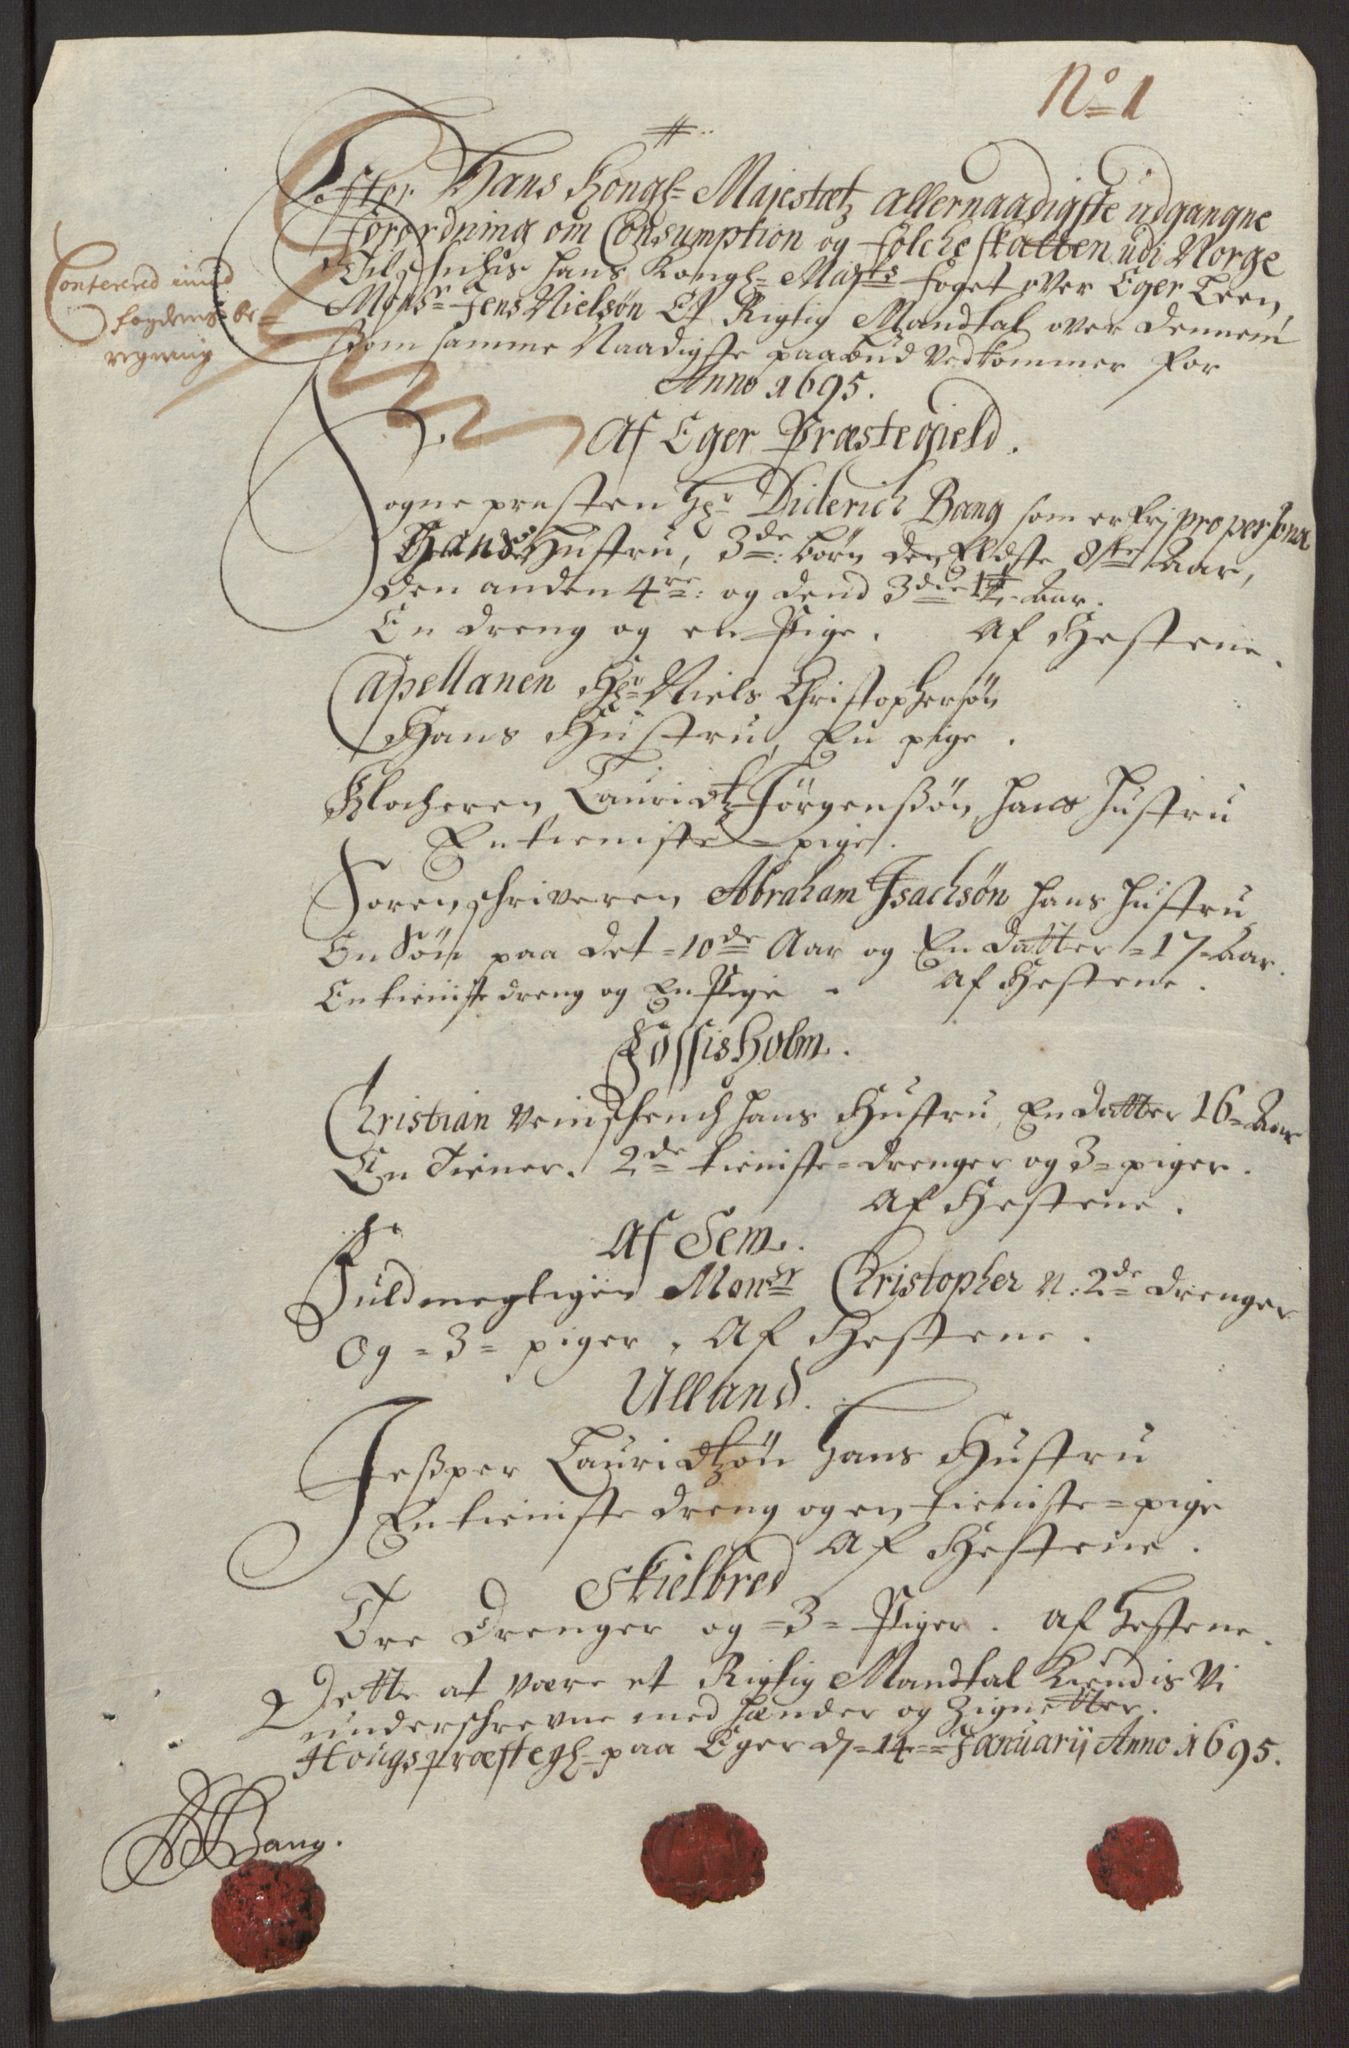 No 1
Efter Hans Kongl: Majestætz allernaadigste udgangne
forordning om Consumption og folcheskatten udi Norge
hans Kongl: Maj:ts foget over Eger Leen,
Monsr Jens Nielsøn Et Rigtig Mandtal over dennem
som samme Naadigste paabud vedkommer for
Anno 1695.
Conterered imod
fogdens be=
regning
Af Eger Præstegield.
Sognepresten Hr Diderich Bang som er frj pro persona
Hans Hustru, 3de børn den Eldste 8te Aar,
den anden 4re: og dend 3die 1½ Aar.
En dreng og en Pige. Af Hestene.
Capellanen Hr Niels Christophersøn
Hans Hustru, En pige.
Klocheren Lauridtz Jörgenßøn, hans hustru
En tieniste = pige.
Sorenschriveren Abraham Isachsøn hans hustru
En Søn paa det = 10de Aar og En datter = 17 = Aar.
En tieniste dreng og En Pige. Af Hestene.
Fossisholm.
Christian Veinschench hans Hustru, En datter 16 = Aar
En Tiener. 2de tieniste = drenger og 3 = piger.
Af Hestene.
Af Sem.
Fuldmegtigen Monsr Christopher N: 2de drenger
Og = 3 = piger. Af Hestene.
Ulland.
Jeßper Lauridtzøn hans Hustru
En tieniste dreng og en tieniste = pige
Af Hestene.
Skielbred
Tre Drenger og = 3 = Piger. Af hestene.
Dette at være et Rigtig Mandtal Kiendis Vi
underschrevne med hænder og Zignetter.
Hougs præstegl: paa Eger d = 14 = Januarij Anno 1695.
Bang.